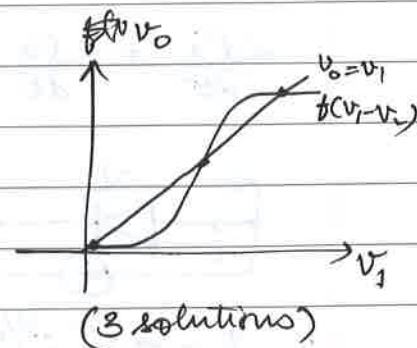 v₀
v₀=v₁
f(v₁-v₂)
v₁
(3 solutions)